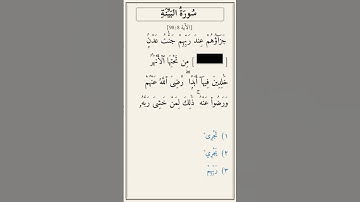 سُورَةُ البَيِّنَةِ
[الآية 8:98]
جَزَآؤُهُمْ عِندَ رَبِّهِمْ جَنَّٰتُ عَدْنٍۢ
[ ] مِن تَحْتِهَا ٱلْأَنْهَٰرُ
خَٰلِدِينَ فِيهَآ أَبَدًۭا ۖ رَّضِىَ ٱللَّهُ عَنْهُمْ
وَرَضُوا۟ عَنْهُ ۚ ذَٰلِكَ لِمَنْ خَشِىَ رَبَّهُۥ
١) تَجْرِى
٢) يَجْرِي
٣) رَبِّهِمْ